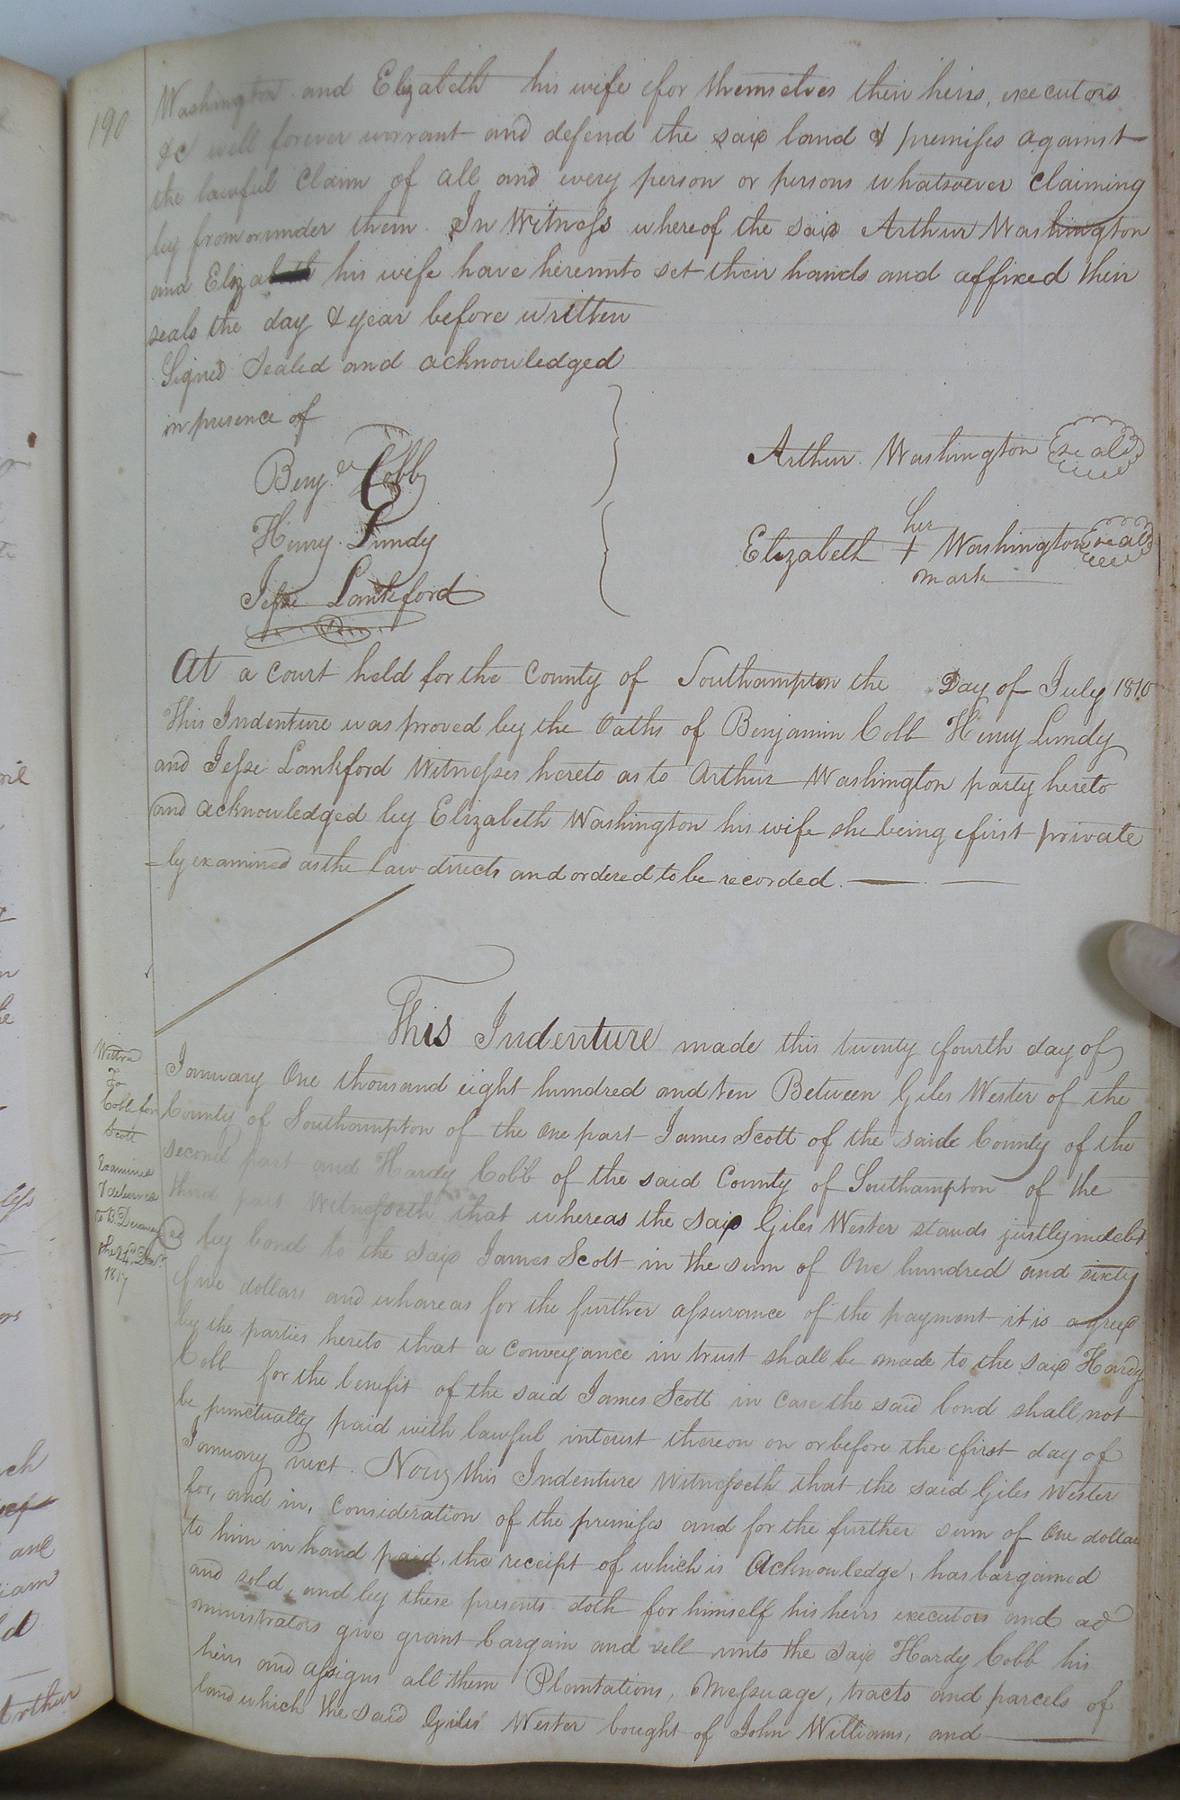 190
Washington and Elizabeth his wife for themselves their heirs, executors
&c will forever warrant and defend the said land & premises against
the lawful claim of all and every person or persons whatsoever claiming
by from or under them. In Witness whereof the said Arthur Washington
and Elizabeth his wife have hereunto set their hands and affixed their
seals the day & year before written
Signed Sealed and acknowledged
in presence of
Benj.a Cobb
Henry Lundy
Jesse Lankford
Arthur Washington seald
her
Elizabeth + Washington seald
mark
At a court held for the County of Southampton the Day of July 1810
This Indenture was proved by the Oaths of Benjamin Cobb Henry Lundy
and Jesse Lankford Witnesses hereto as to Arthur Washington party hereto
and acknowledged by Elizabeth Washington his wife she being first private
-ly examined as the law directs and ordered to be recorded.
This Indenture made this twenty fourth day of
January One thousand eight hundred and ten Between Giles Wester of the
County of Southampton of the one part James Scott of the saide County of the
second part and Hardy Cobb of the said County of Southampton of the
third part Witnesseth that whereas the said Giles Wester stands justly indebt
ed by bond to the said James Scott in the sum of One hundred and sixty
five dollars and whareas for the further assurance of the payment it is agreed
by the parties hereto that a conveyance in trust shall be made to the said Hardy
Cobb for the benefit of the said James Scott in case the said bond shall not
be punctually paid with lawful interest thereon on or before the first day of
January next. Now this Indenture Witnesseth that the said Giles Wester
for, and in, consideration of the premises and for the further sum of One dollar
to him in hand paid, the receipt of which is Acknowledge, has bargained
and sold, and by these presents doth for himself his heirs executors and ad
ministrators give grant bargain and sell unto the said Hardy Cobb his
heirs and assigns all them Plantations, Messuage, tracts and parcels of
land which the said Giles Wester bought of John Williams, and
To
Cobb for
Scott
Examined
1817